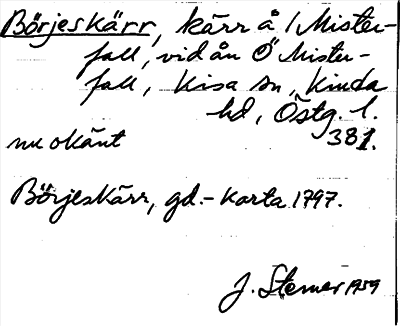 Börjeskärr, kärr å 1 Mister-
fall, vid ån Ö Mister-
fall, Kisa sn, Kinda
hd, Östg. l.
nu okänt 381.
Börjeskärr, gd. - karta 1797.
J. Sterner 1959